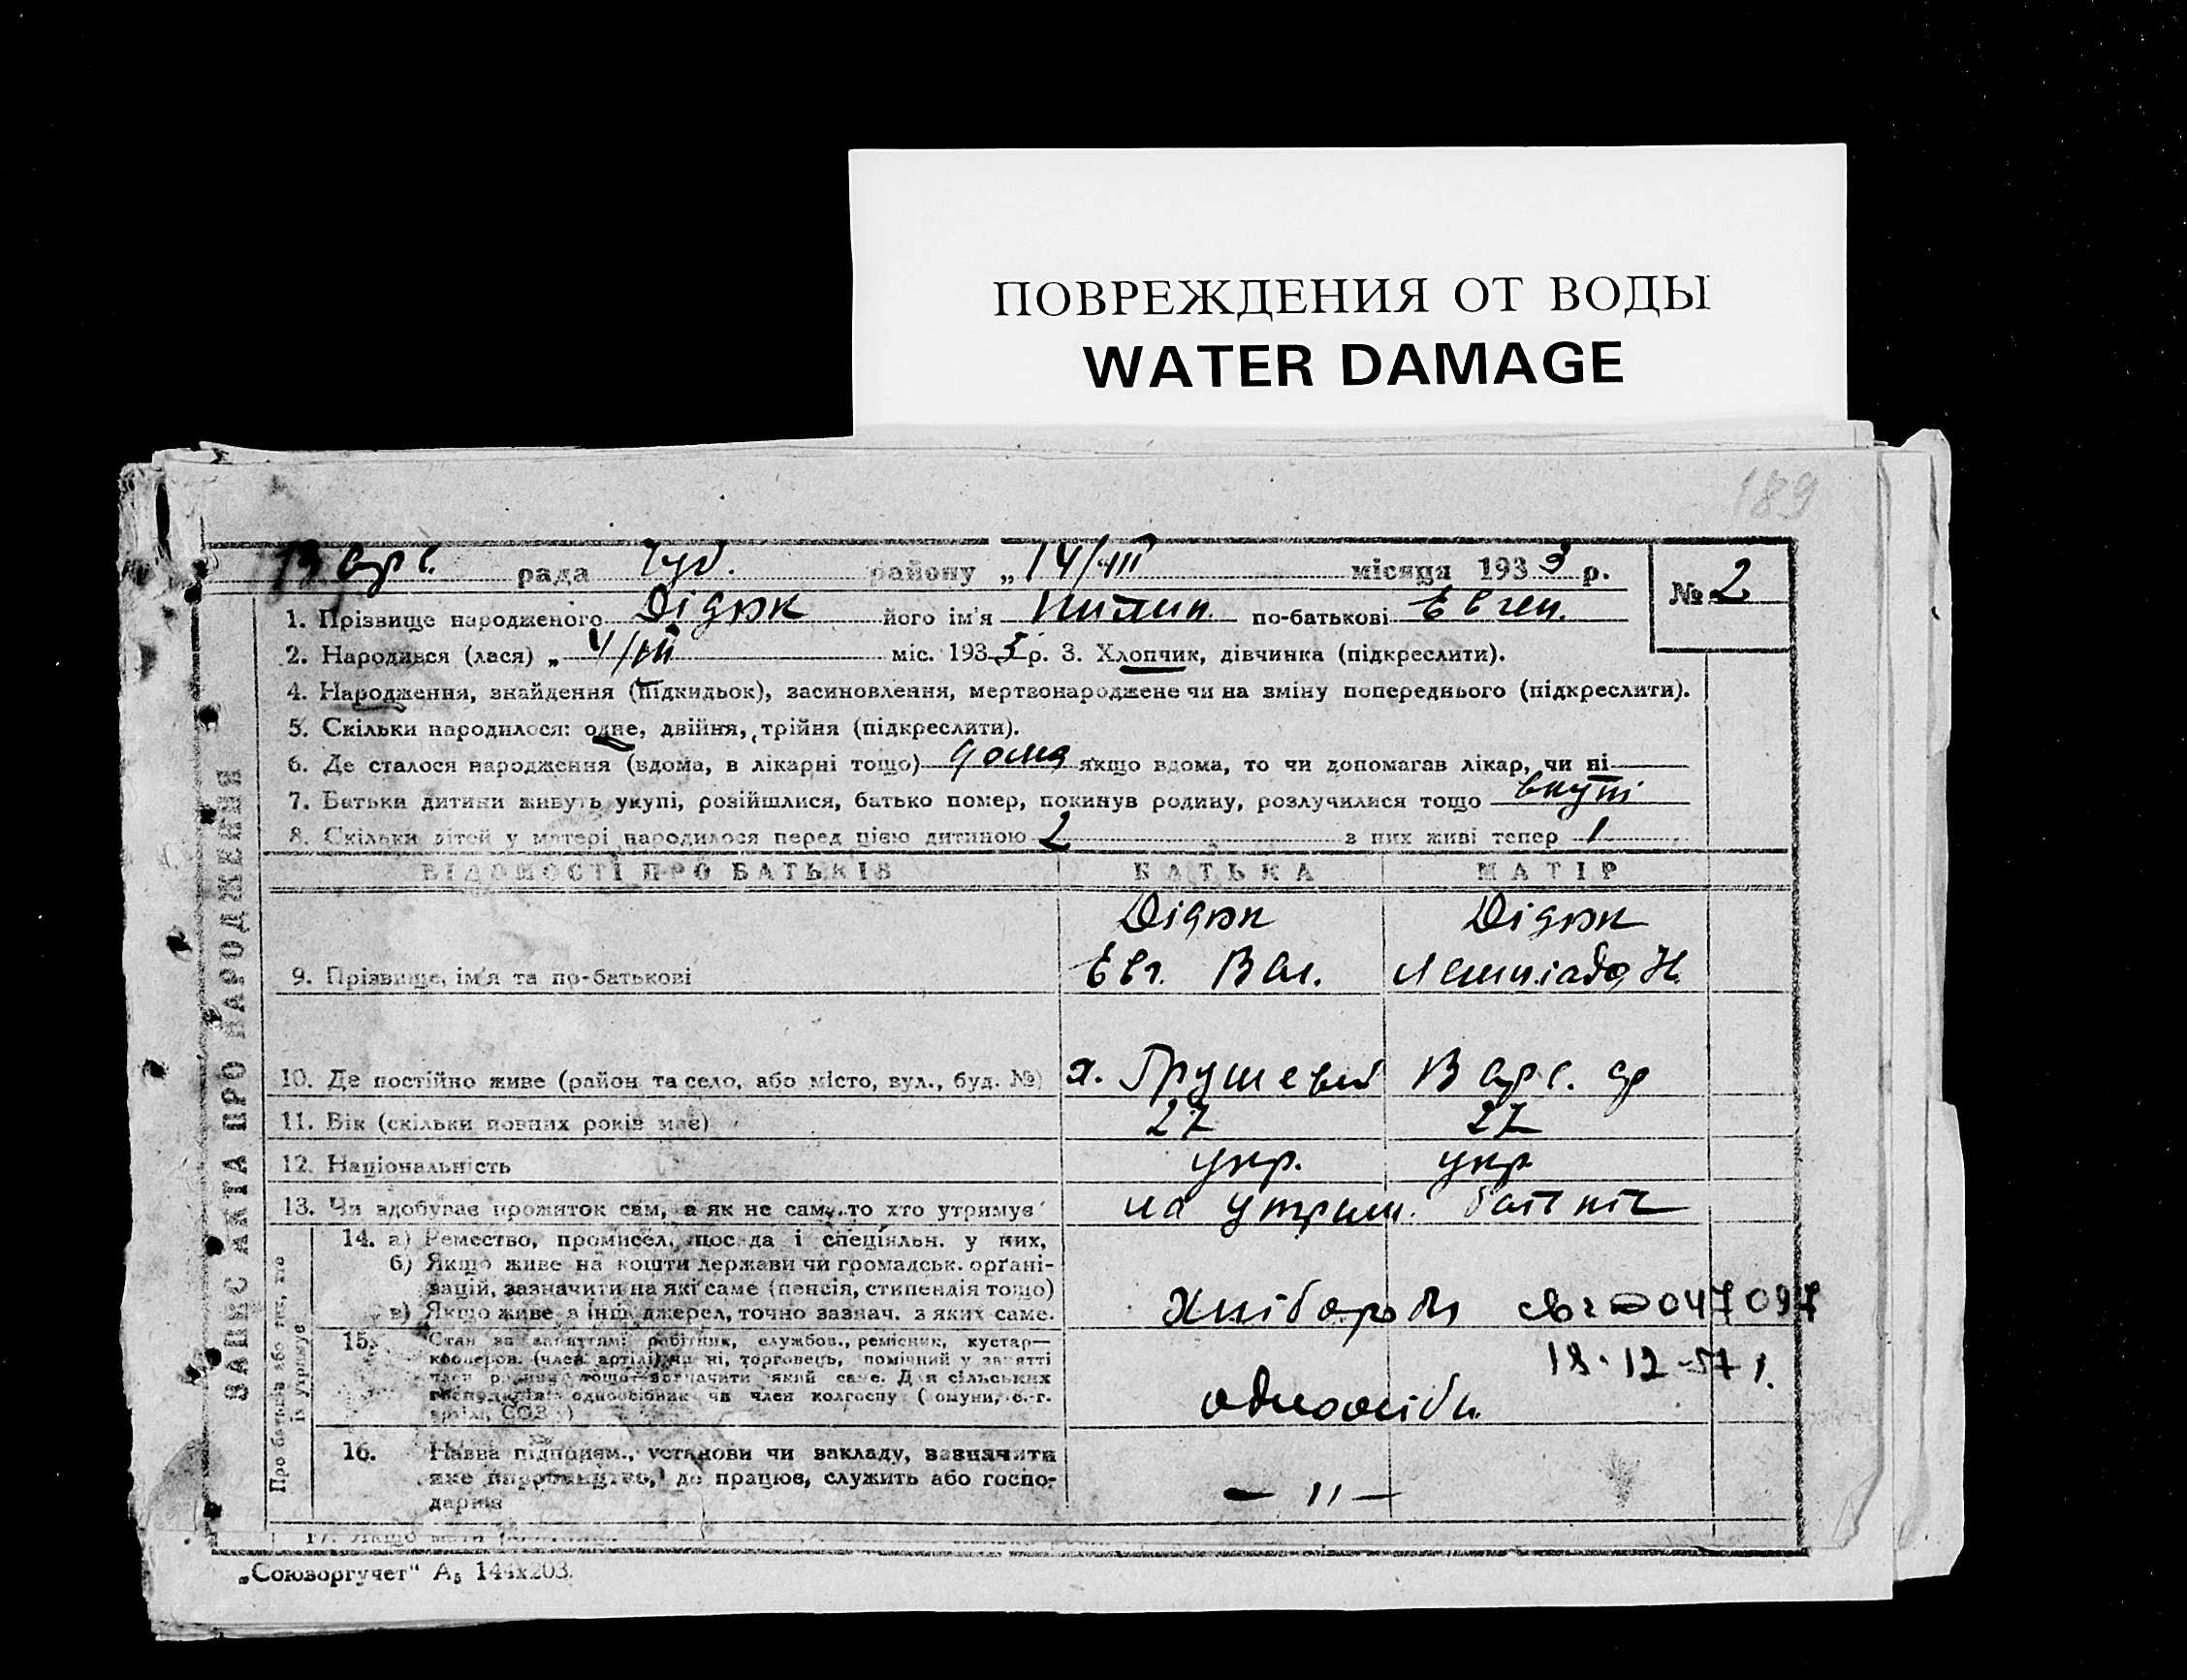 ПОВРЕЖДЕНИЯ ОТ ВОДЫ
WATER DAMAGE
189
Варв. рада Чуб. району „14/VIII місяця 1933 р. № 2
1. Прізвище народженого Дідюк його ім'я по-батькові Евген.
2. Народився (лася) „ 4/VII міс. 1933 р. 3. Хлопчик, дівчинка (підкреслити).
4. Народження, знайдення (підкидьок), засиновлення, мертвонароджене чи на зміну попереднього (підкреслити).
5. Скільки народилося: одне, двійня, трійня (підкреслити).
6. Де сталося народження (вдома, в лікарні тощо) дома якщо вдома, то чи допомагав лікар, чи ні
7. Батьки дитини живуть укупі, розійшлися, батько помер, покинув родину, розлучилися тощо вкупі
8. Скільки дітей у матері народилося перед цією дитиною 2 з них живі тепер 1
ВІДОМОСТІ ПРО БАТЬКІВ БАТЬКА МАТІР
Дідюк Дідюк
9. Прізвище, ім'я та по-батькові Евг. Вас. Н.
10. Де постійно живе (район та село, або місто, вул., буд. №) х. Грушевий Варв. ср
11. Вік (скільки повних років має) 27 27
12. Національність укр. укр
13. Чи здобував прожиток сам, а як не сам, то хто утримує на утрим. батьків
14. а) Ремество, промисел, посада і спеціяльн. у них,
б) Якщо живе на кошти держави чи громадськ. орґані-
зацій, зазначити на які саме (пенсія, стипендія тощо)
в) Якщо живе з інш. джерел, точно зазнач. з яких саме. Хлібороби 047097
18-12-57 г.
15. Стан за заняттям: робітник, службов., ремісник, кустар—
кооперов. (член артілі) чи ні, торговець, помічний у занятті
член родини тощо зазначити який саме. Для сільських
господарів: одноосібник чи член колгоспу (комуни, с.-г.
артілі, СОЗ) одноосібн.
16. Назва підприєм., установи чи закладу, зазначити
яке виробництво, де працює, служить або госпо-
дарює — 〃 —
ЗАПИС АКТА ПРО НАРОДЖЕННЯ
Про батьків або тих, хто
їх утримує
„Союзоргучет“ А₅ 144х203.